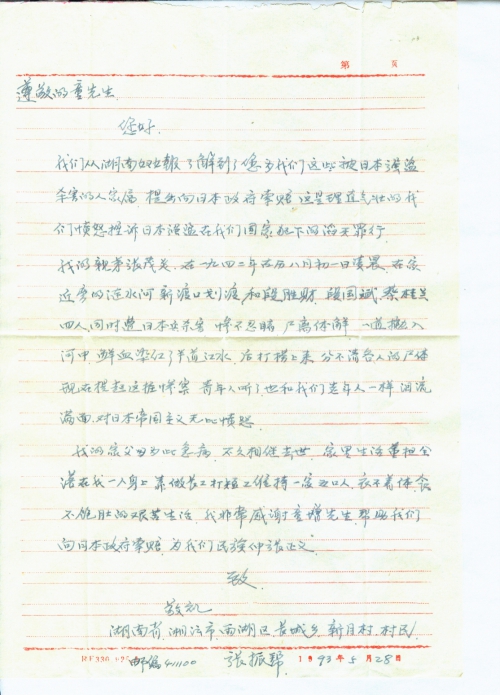 第 页
尊敬的童先生
您好
我们从湖南妇女报了解到了您为我们这些被日本强盗
杀害的人家属 提出向日本政府索赔 这是理直气壮的 我
们愤怒控诉日本强盗在我们国家犯下的滔天罪行
我的亲弟张茂关 在一九四二年农历八月初一日凌晨 在家
近旁的涟水河 新渡口划渡 和段胜财 段国斌 蔡桂关
四人同时遭日本兵杀害 惨不忍睹 尸离体解 一道抛入
河中 鲜血染红了半边江水 后打捞上来 分不清各人的尸体
现在提起这桩惨案 青年人听了也和我们老年人一样 泪流
满面 对日本帝国主义无比愤怒
我的家父母为此急病 不久相继去世 家里生活重担全
落在我一人身上 靠做长工打短工维持一家 口人 衣不着体 食
不饱肚的艰苦生活 我非常感谢童增先生 帮助我们
向日本政府索赔 为我们民族伸张正义
致
敬礼
湖南省 湘 市 雨湖区 长城乡 新月村 村民
张振邦 1993年5月28日
邮编411100